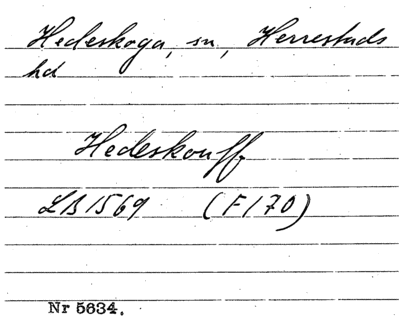 Hedeskoga, sn, Herrestads
hd
Hedeskouff
LB 1569 (F170)
Nr 5634.